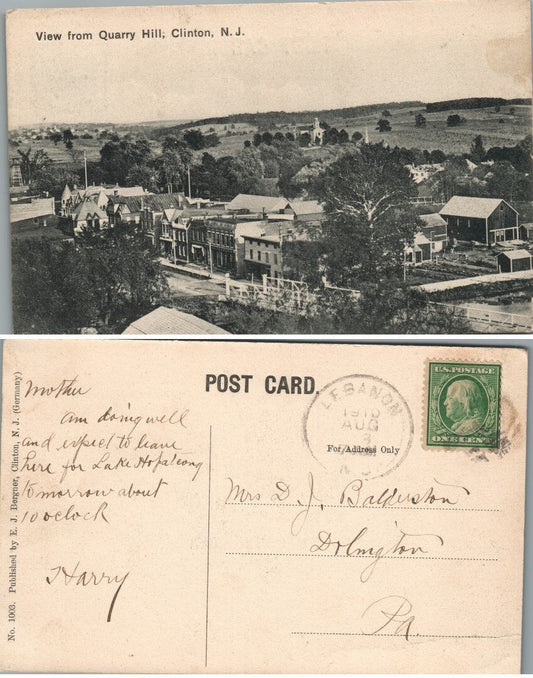 View from Quarry Hill, Clinton, N. J.
No. 1003. Published by E. J. Berguer, Clinton, N. J. (Germany)
Mother
am doing well
and expect to leave
here for Lake Hopatcong
tomorrow about
10 oclock
Harry
POST CARD.
LEBANON
1910
AUG
3
N.J.
For Address Only
U.S. POSTAGE
ONE CENT
Mrs D. J. Balderston
Dolington
Pa.